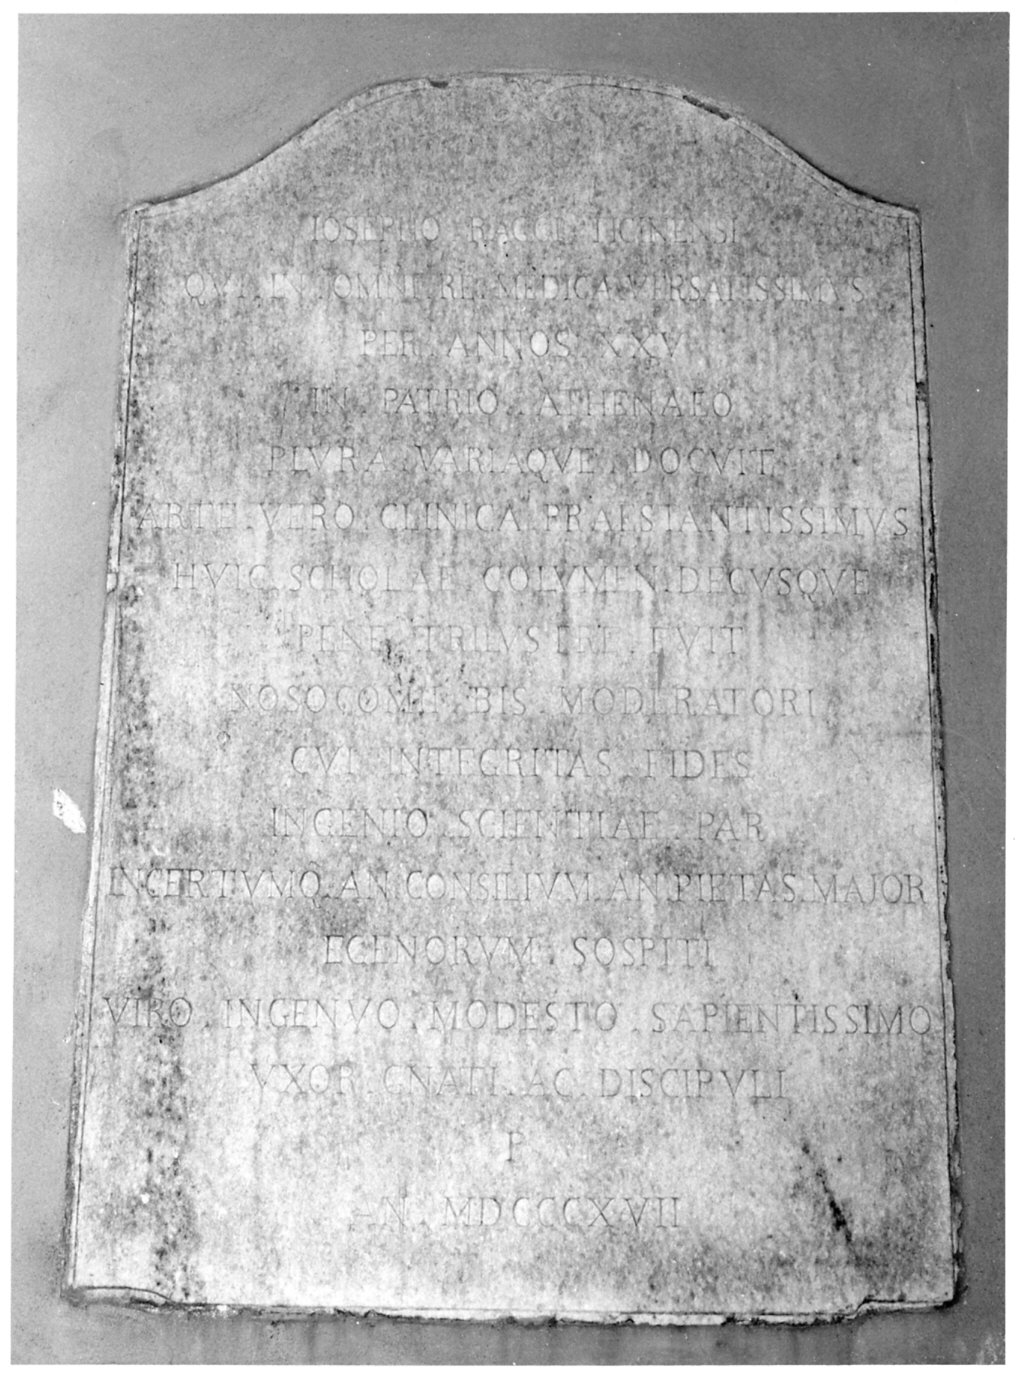 IOSEPHO . RAGGI . TICINENSI
QVI . IN . OMNI . RE . MEDICA . VERSATISSIMVS
PER . ANNOS . XXV
IN . PATRIO . ATHENAEO
PLVRA . VARIAQVE . DOCVIT
ARTE . VERO . CLINICA . PRAESTANTISSIMVS
HVIC . SCHOLAE . COLVMEN . DECVSQVE
PENE . TRILVSTRE . FVIT
NOSOCOMII . BIS . MODERATORI
CVI . INTEGRITAS . FIDES
INGENIO . SCIENTIAE . PAR
INCERTVMQ . AN . CONSILIVM . AN . PIETAS . MAJOR
EGENORVM . SOSPITI
VIRO . INGENVO . MODESTO . SAPIENTISSIMO
VXOR . GNATI . AC . DISCIPVLI
P
AN . MDCCCXVII